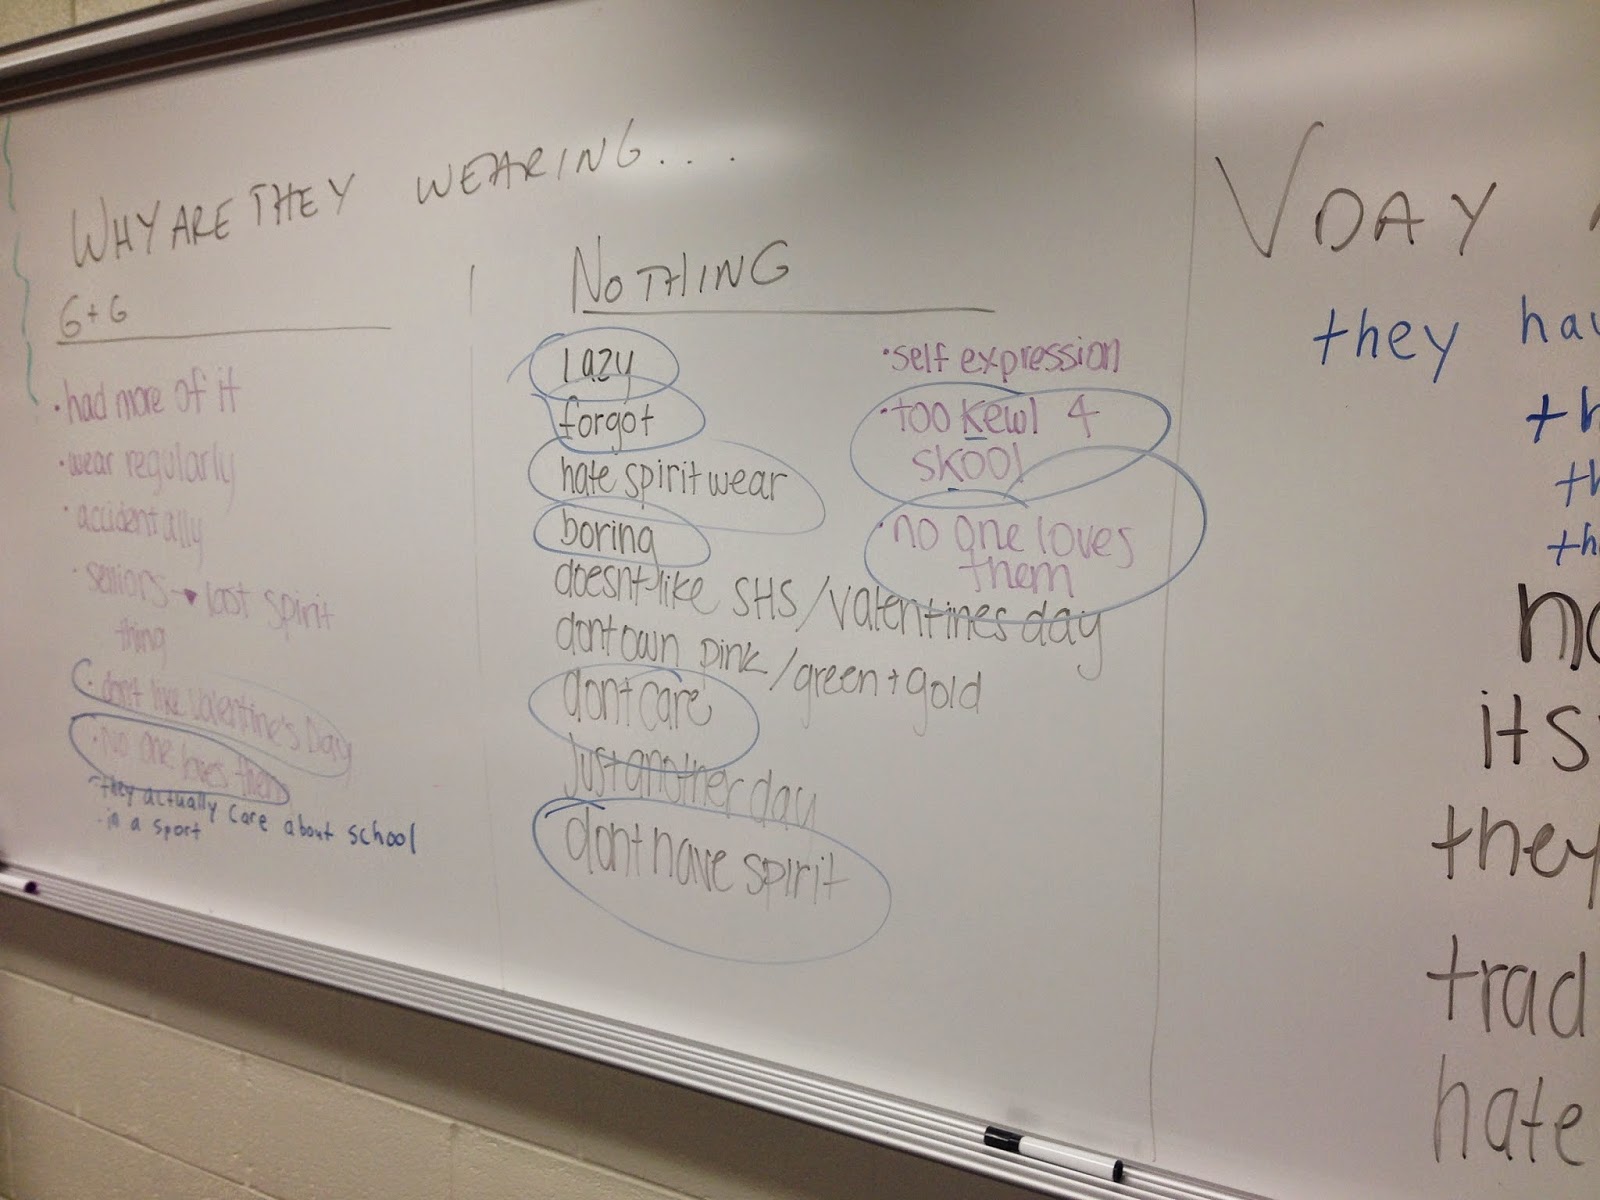 WHY ARE THEY WEARING...
G+G
• had more of it
• wear regularly
• accidentally
• seniors → last spirit
thing
• dont like valentine's Day
• No one loves them
- they actually care about school
- in a sport
NOTHING
lazy
forgot
hate spirit wear
boring
doesnt like SHS/valentines day
dont own pink/green + gold
dont care
just another day
dont have spirit
• self expression
• too kewl 4
skool
• no one loves
them
VDAY
they
its
they
hate